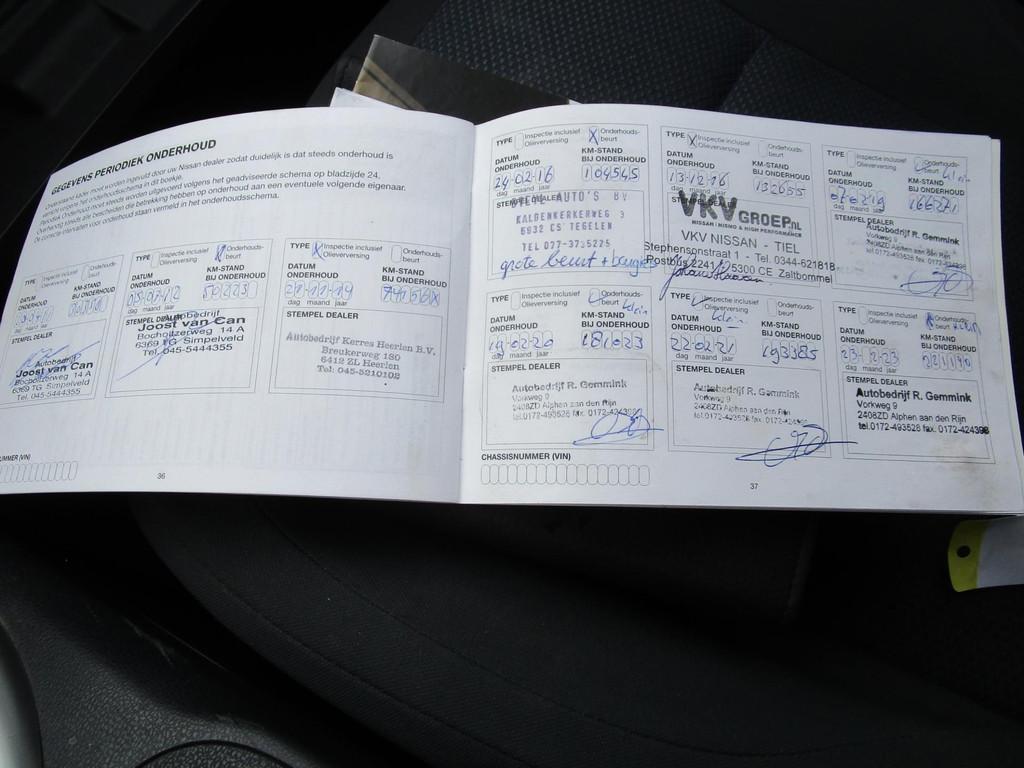 GEGEVENS PERIODIEK ONDERHOUD
Onderstaand kader moet worden ingevuld door uw Nissan dealer zodat duidelijk is dat steeds onderhoud is
verricht volgens het onderhoudsschema in dit boekje.
Periodiek Onderhoud moet steeds worden uitgevoerd volgens het geadviseerde schema op bladzijde 24.
Overhandig steeds alle bescheiden die betrekking hebben op onderhoud aan een eventuele volgende eigenaar.
De correcte intervallen voor onderhoud staan vermeld in het onderhoudsschema.
TYPE Inspectie inclusief Olieverversing Onderhouds-beurt
DATUM ONDERHOUD
KM-STAND BIJ ONDERHOUD
dag maand jaar
STEMPEL DEALER
Autobedrijf
Joost van Can
Bocholtzerweg 14 A
6369 TG Simpelveld
Tel. 045-5444355
TYPE Inspectie inclusief Olieverversing Onderhouds-beurt
DATUM ONDERHOUD
KM-STAND BIJ ONDERHOUD
dag maand jaar
STEMPEL DEALER
Autobedrijf
Joost van Can
Bocholtzerweg 14 A
6369 TG Simpelveld
Tel. 045-5444355
TYPE X Inspectie inclusief Olieverversing Onderhouds-beurt
DATUM ONDERHOUD
KM-STAND BIJ ONDERHOUD
dag maand jaar
STEMPEL DEALER
Autobedrijf Kerres Heerlen B.V.
Breukerweg 180
6412 ZL Heerlen
Tel: 045-5210102
36
TYPE Inspectie inclusief Olieverversing X Onderhouds-beurt
DATUM ONDERHOUD
KM-STAND BIJ ONDERHOUD
24-02-16 104545
dag maand jaar
STEMPEL DEALER
AUTO'S BV
KALDENKERKERWEG 3
5932 CS TEGELEN
TEL 077-3735225
grote beurt +
TYPE X Inspectie inclusief Olieverversing Onderhouds-beurt
DATUM ONDERHOUD
KM-STAND BIJ ONDERHOUD
13-12-16 132655
dag maand jaar
VKV GROEP.NL
NISSAN | NISMO & HIGH PERFORMANCE
VKV NISSAN - TIEL
Stephensonstraat 1 - Tel. 0344-621818
Postbus 2241 5300 CE Zaltbommel
TYPE Inspectie inclusief Olieverversing Onderhouds-beurt klein
DATUM ONDERHOUD
KM-STAND BIJ ONDERHOUD
166271
dag maand jaar
STEMPEL DEALER
Autobedrijf R. Gemmink
Vorkweg 9
2408ZD Alphen aan den Rijn
tel.0172-493528 fax. 0172-424398
TYPE Inspectie inclusief Olieverversing Onderhouds-beurt klein
DATUM ONDERHOUD
KM-STAND BIJ ONDERHOUD
19-02-20 181023
dag maand jaar
STEMPEL DEALER
Autobedrijf R. Gemmink
Vorkweg 9
2408ZD Alphen aan den Rijn
tel.0172-493528 fax. 0172-424398
TYPE Inspectie inclusief Olieverversing Onderhouds-beurt
klein
DATUM ONDERHOUD
KM-STAND BIJ ONDERHOUD
22-02-21 193385
dag maand jaar
STEMPEL DEALER
Autobedrijf R. Gemmink
Vorkweg 9
2408ZD Alphen aan den Rijn
tel.0172-493528 fax. 0172-424398
TYPE Inspectie inclusief Olieverversing Onderhouds-beurt klein
DATUM ONDERHOUD
KM-STAND BIJ ONDERHOUD
dag maand jaar
STEMPEL DEALER
Autobedrijf R. Gemmink
Vorkweg 9
2408ZD Alphen aan den Rijn
tel.0172-493528 fax. 0172-424398
CHASSISNUMMER (VIN)
37